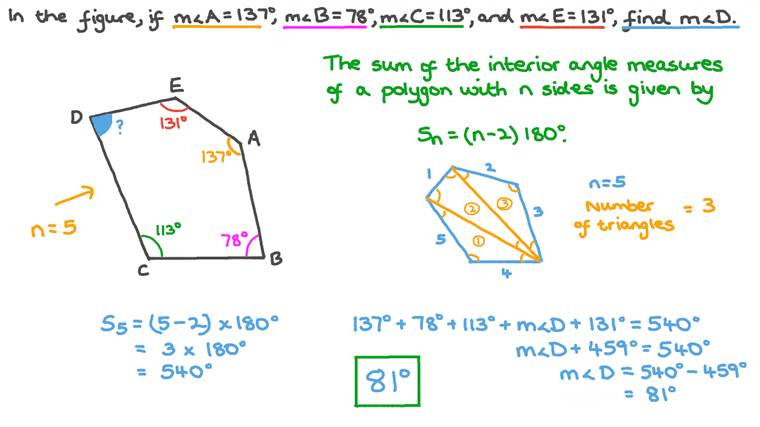 In the figure, if m∠A = 137°, m∠B = 78°, m∠C = 113°, and m∠E = 131°, find m∠D.
The sum of the interior angle measures
of a polygon with n sides is given by
Sn = (n-2) 180°.
E
D
?
131°
A
137°
n = 5
113°
78°
C
B
1
2
3
4
5
①
②
③
n = 5
Number
of triangles
= 3
S5 = (5-2) × 180°
= 3 × 180°
= 540°
137° + 78° + 113° + m∠D + 131° = 540°
m∠D + 459° = 540°
m∠D = 540° - 459°
= 81°
81°